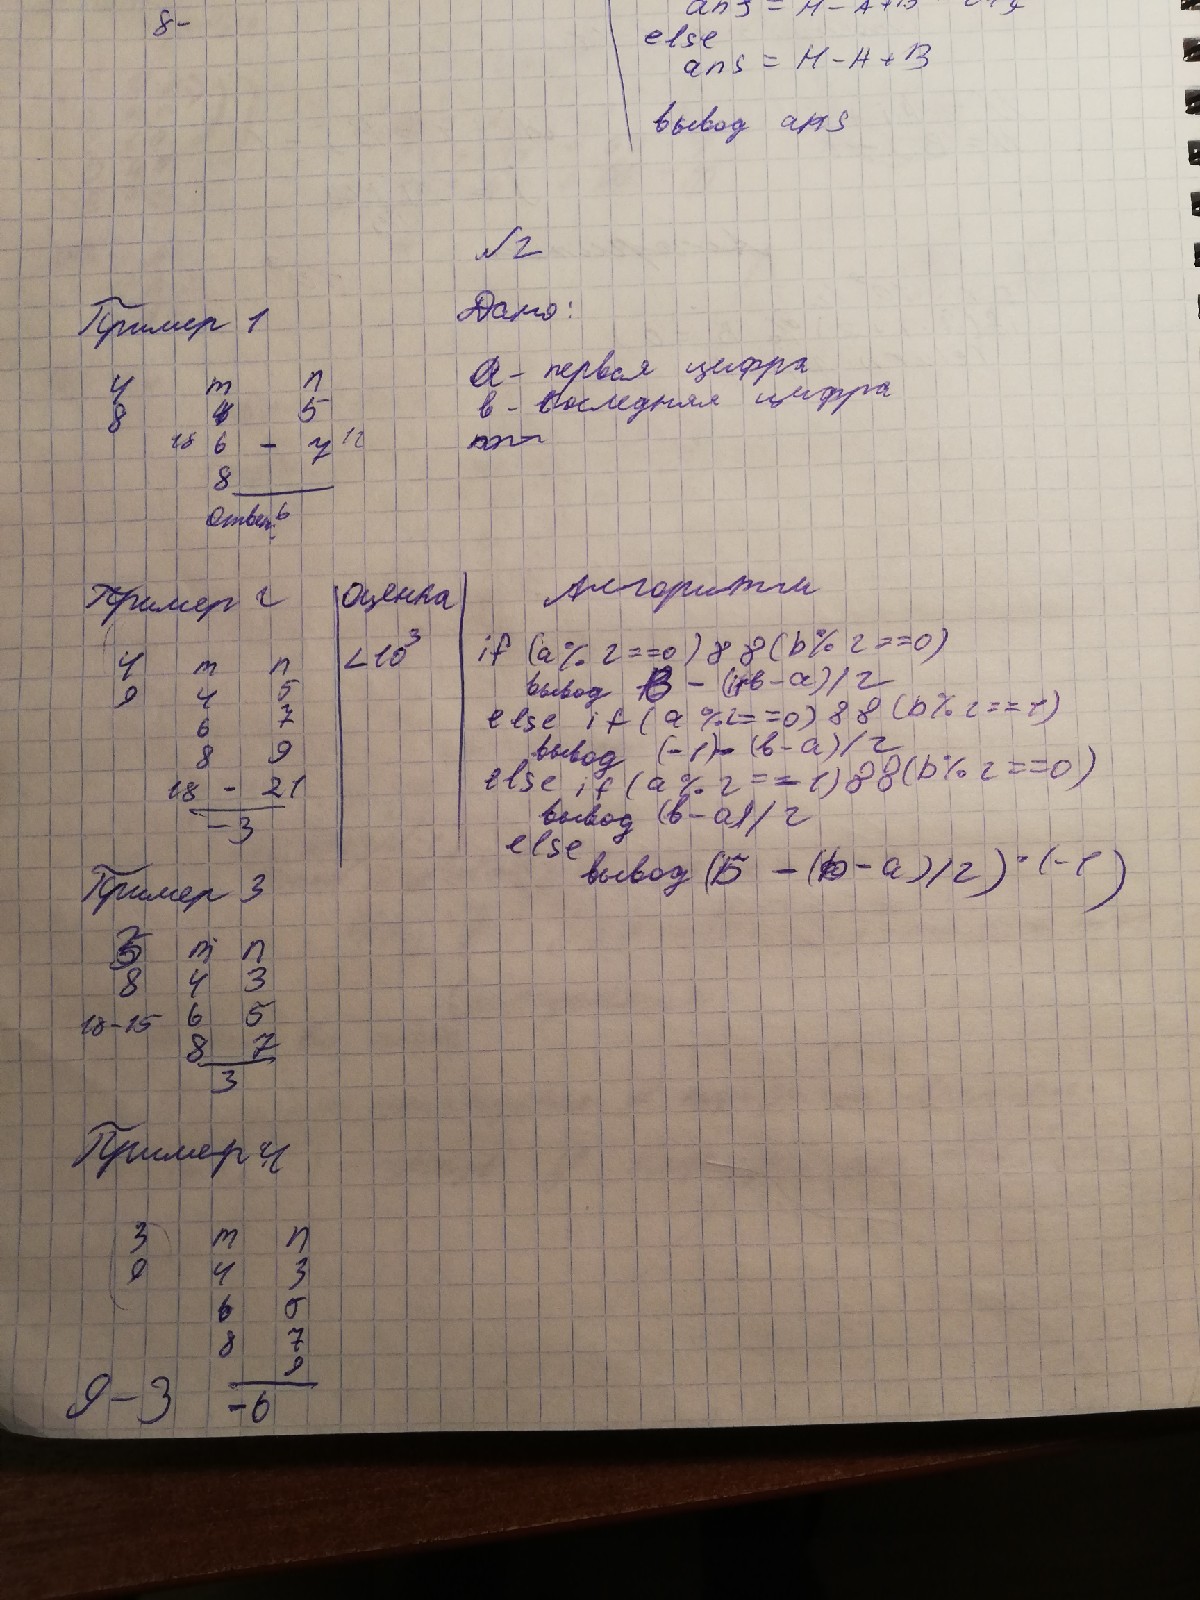 8-
ans = M-A+B
else
ans = M-A+B
вывод ans
№2
Пример 1
4 m n
8 4 5
18 6 - 7 12
8
Ответ: 6
Дано:
a - первая цифра
в - последняя цифра
Пример 2
4 m n
9 4 5
6 7
8 9
18 - 21
-3
Оценка
<10³
Алгоритм
if (a%2==0)&&(b%2==0)
вывод B - (в-a)/2
else if (a%2==0)&&(b%2==1)
вывод (-1)-(в-a)/2
else if (a%2==1)&&(b%2==0)
вывод (в-a)/2
else
вывод (Б - (b-a)/2)·(-1)
Пример 3
3 m n
8 4 3
18-15 6 5
8 7
3
Пример 4
3 m n
9 4 3
6 5
8 7
9
9-3 -6